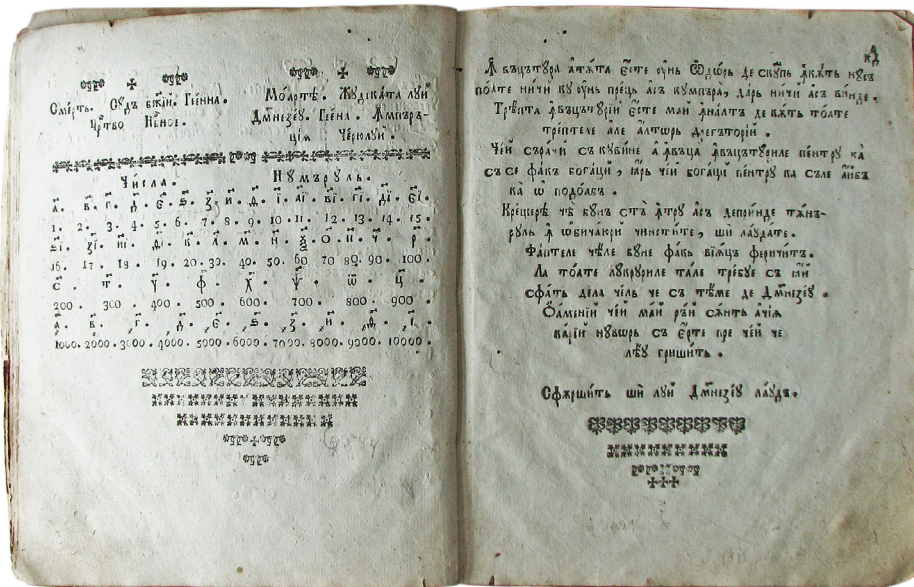 Смерть. Судъ Бжїй. Геенна.
Црⷭ҇тво Нбⷭ҇ное.
Моарте. Жудеката луй
Дмⷩезеу. Геена. Ꙟмпъръ-
цїа Черюлуй.
Числа. Нумъруль.
а҃. в҃. г҃. д҃. є҃. ѕ҃. з҃. и҃. ѳ҃. і҃. аі҃. ві҃. гі҃. ді҃. єі҃.
1. 2. 3. 4. 5. 6. 7. 8. 9. 10. 11. 12. 13. 14. 15.
ѕі҃. зі҃. иі҃. ѳі҃. к҃. л҃. м҃. н҃. ѯ҃. о҃. п҃. ч҃. р҃.
16. 17. 18. 19. 20. 30. 40. 50. 60 70 80. 90. 100.
с҃. т҃. у҃. ф҃. х҃. ѱ҃. ѿ҃. ц҃.
200. 300. 400. 500. 600. 700. 800. 900.
҂а. ҂в. ҂г. ҂д. ҂є. ҂ѕ. ҂з. ҂и. ҂ѳ. ҂і.
1000. 2000. 3000. 4000. 5000. 6000. 7000. 8000. 9000. 10000.
Ꙟвъцътура ꙟтѫта єсте оунь Ѡдѡрь де скупь ꙟкѫть
полте ничи ку оунь прець ась кумпъра, дарь ничи ась винде.
Трѣпта ꙟвъцътурїй єсте май ꙟналт де вѫть толте
трептеле але алтѡрь дїегъторїй.
Чей сърачй съ кувине а ꙟвъца ꙟвъцътуриле пентру ка
съ се факъ богацй, ꙗрь чей богацй пентру ка съле айбъ
ка ѡ подоабъ.
Крещере чѣ бунъ стъ ꙟтру ась деприnде тѫнъ-
руль ꙟ ѡбичаюрй чинстите, ши лаудате.
Фаптеле чѣле буне факъ вїацъ феричитъ.
Ла тоате лукруриле тале требуе съ ꙗй
сфать дела чель че съ тѣме де Дмⷩезеу.
Ѡаменїй чей май ръй сѫнть ачїа
карїй нувѡрь съ єрте пре чей че
лѣу гришить.
Сфѫршить ши луй Дмⷩезеу лаудъ.